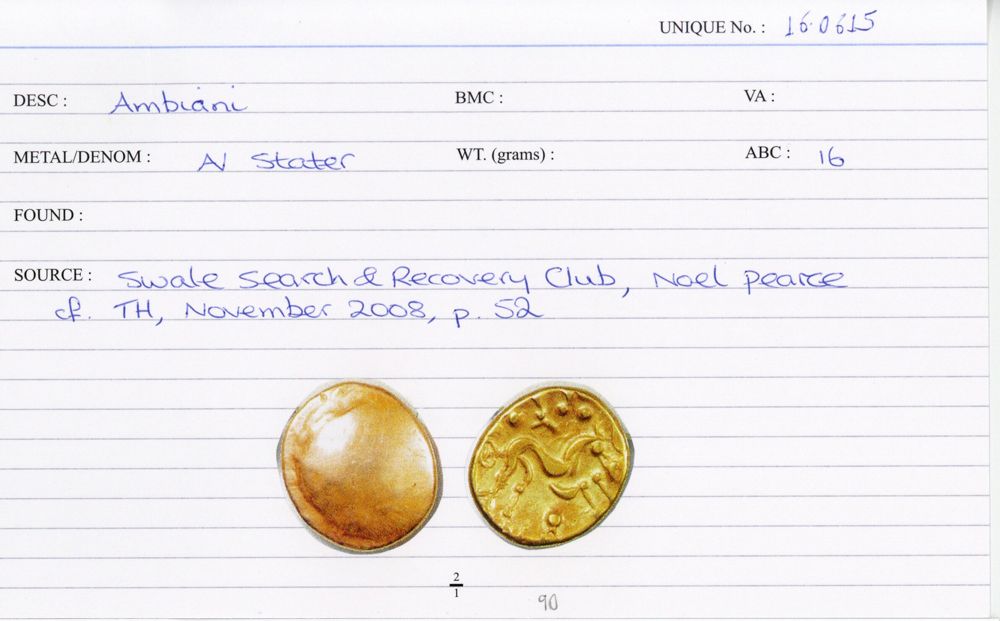 UNIQUE No. : 16.0615
DESC : Ambiani BMC : VA :
METAL/DENOM : AV Stater WT. (grams) : ABC : 16
FOUND :
SOURCE : Swale Search & Recovery Club, Noel Pearce
cf. TH, November 2008, p. 52
2
1
90